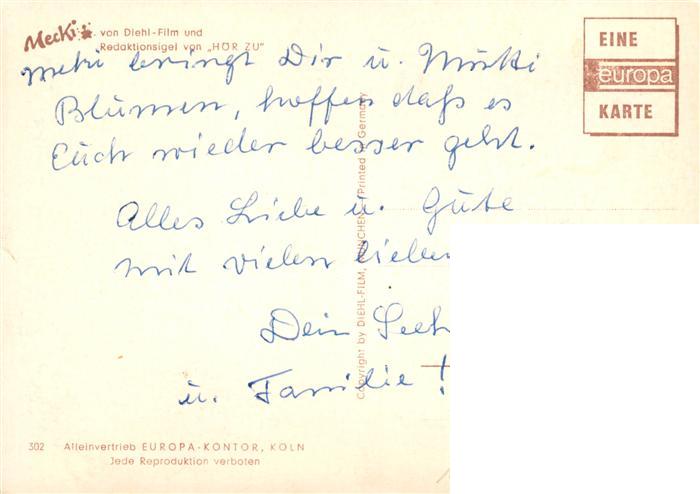 Mecki von Diehl-Film und
Redaktionsigel von „HÖR ZU"
EINE
europa
KARTE
meki bringt Dir u. Mutti
Blumen, hoffen daß es
Euch wieder besser geht.
Alles Liebe u. Gute
mit vielen lieben
Dein
u. Familie!
Copyright by DIEHL-FILM, MÜNCHEN / Printed in Germany
302 Alleinvertrieb EUROPA-KONTOR, KÖLN
Jede Reproduktion verboten